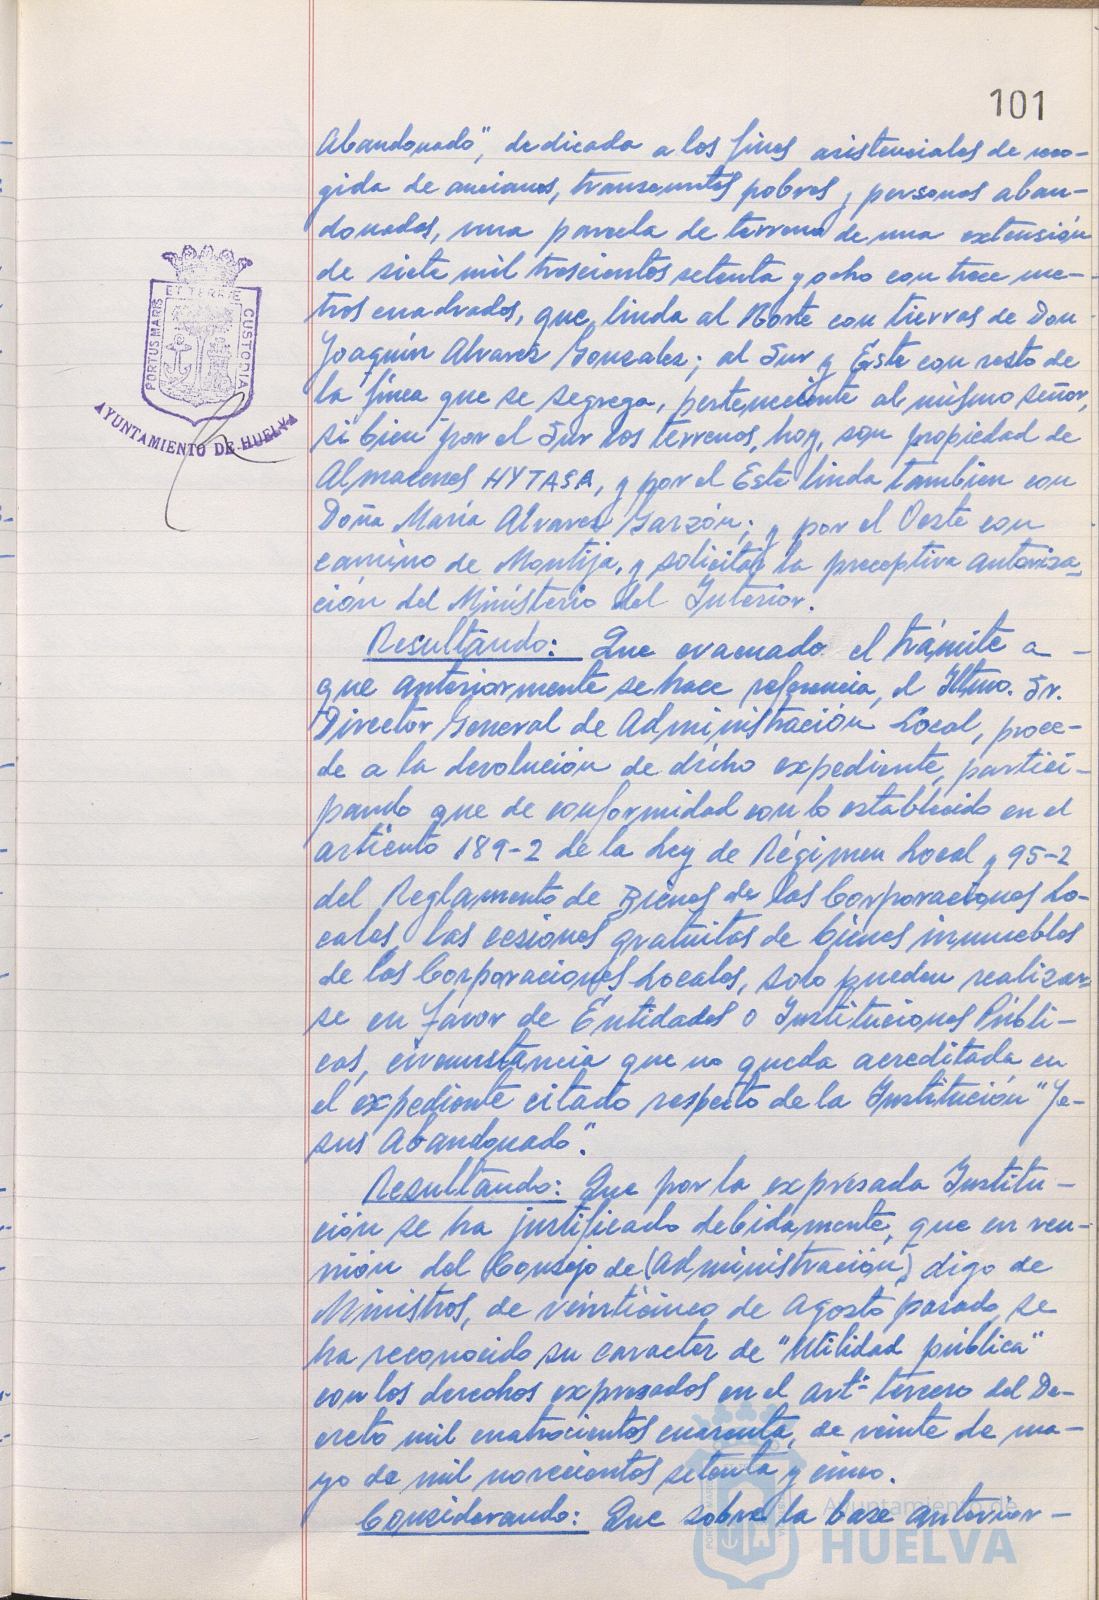 101
Abandonado", dedicada a los fines asistenciales de reco-
gida de ancianos, transeuntes pobres y personas aban-
donadas, una parcela de terreno de una extensión
de siete mil trescientos setenta y ocho con trece me-
tros cuadrados, que linda al Norte con tierras de Don
Joaquín Alvarez Gonzalez; al Sur y Este con resto de
la finca que se segrega, perteneciente al mismo señor,
si bien por el Sur los terrenos, hoy, son propiedad de
Almacenes HYTASA, y por el Este linda tambien con
Doña María Alvarez Garzón; y por el Oeste con
camino de Montija, y solicitar la preceptiva autoriza-
ción del Ministerio del Interior.
Resultando: Que evacuado el trámite a -
que anteriormente se hace referencia, el Iltmo. Sr.
Director General de Administración Local, proce-
de a la devolución de dicho expediente, partici-
pando que de conformidad con lo establecido en el
artículo 189-2 de la Ley de Régimen Local y 95-2
del Reglamento de Bienes de las Corporaciones Lo-
cales, las cesiones gratuitas de bienes inmuebles
de las Corporaciones Locales, solo pueden realizar-
se en favor de Entidades o Instituciones Públi-
cas, circunstancia que no queda acreditada en
el expediente citado respecto de la Institución "Je-
sus Abandonado".
Resultando: Que por la expresada Institu-
ción se ha justificado debidamente, que en reu-
nión del Consejo de (Administración) digo de
Ministros, de veinticinco de Agosto pasado, se
ha reconocido su caracter de "Utilidad pública"
con los derechos expresados en el artº tercero del De-
creto mil cuatrocientos cuarenta, de veinte de ma-
yo de mil novecientos setenta y cinco.
Considerando: Que sobre la base anterior-
PORTUS MARIS
ET TERRE
CUSTODIA
AYUNTAMIENTO DE HUELVA
Ayuntamiento de
HUELVA